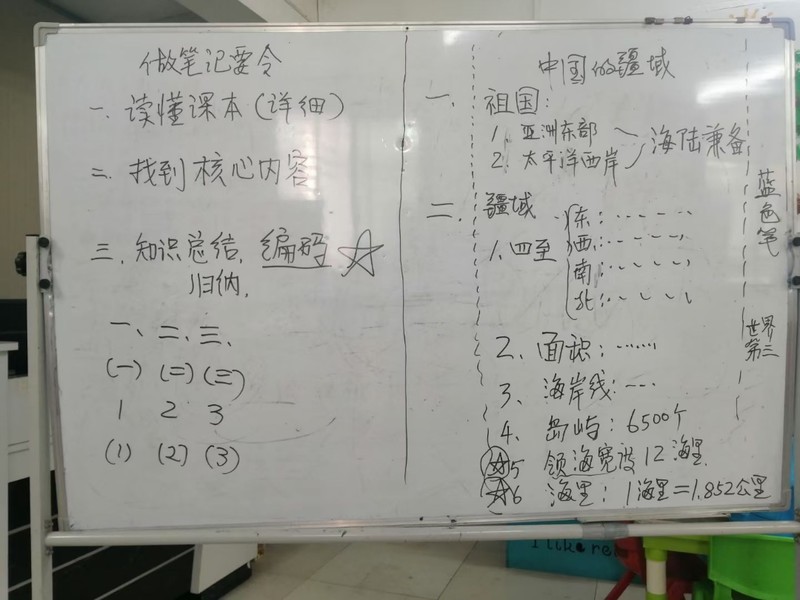 做笔记要令
一. 读懂课本(详细)
二. 找到核心内容
三. 知识总结, 编码 ☆
归纳,
一、二、三、
(一) (二) (三)
1 2 3
(1) (2) (3)
中国的疆域
一. 祖国:
1. 亚洲东部
2. 太平洋西岸
海陆兼备
二. 疆域
1. 四至
东: ......
西: ......
南: ......
北: ......
2、面积: ......
3、海岸线: ....
4、岛屿: 6500个
☆5 领海宽度 12海里
☆6 海里: 1海里=1.852公里
蓝色笔
世界第三
I like re